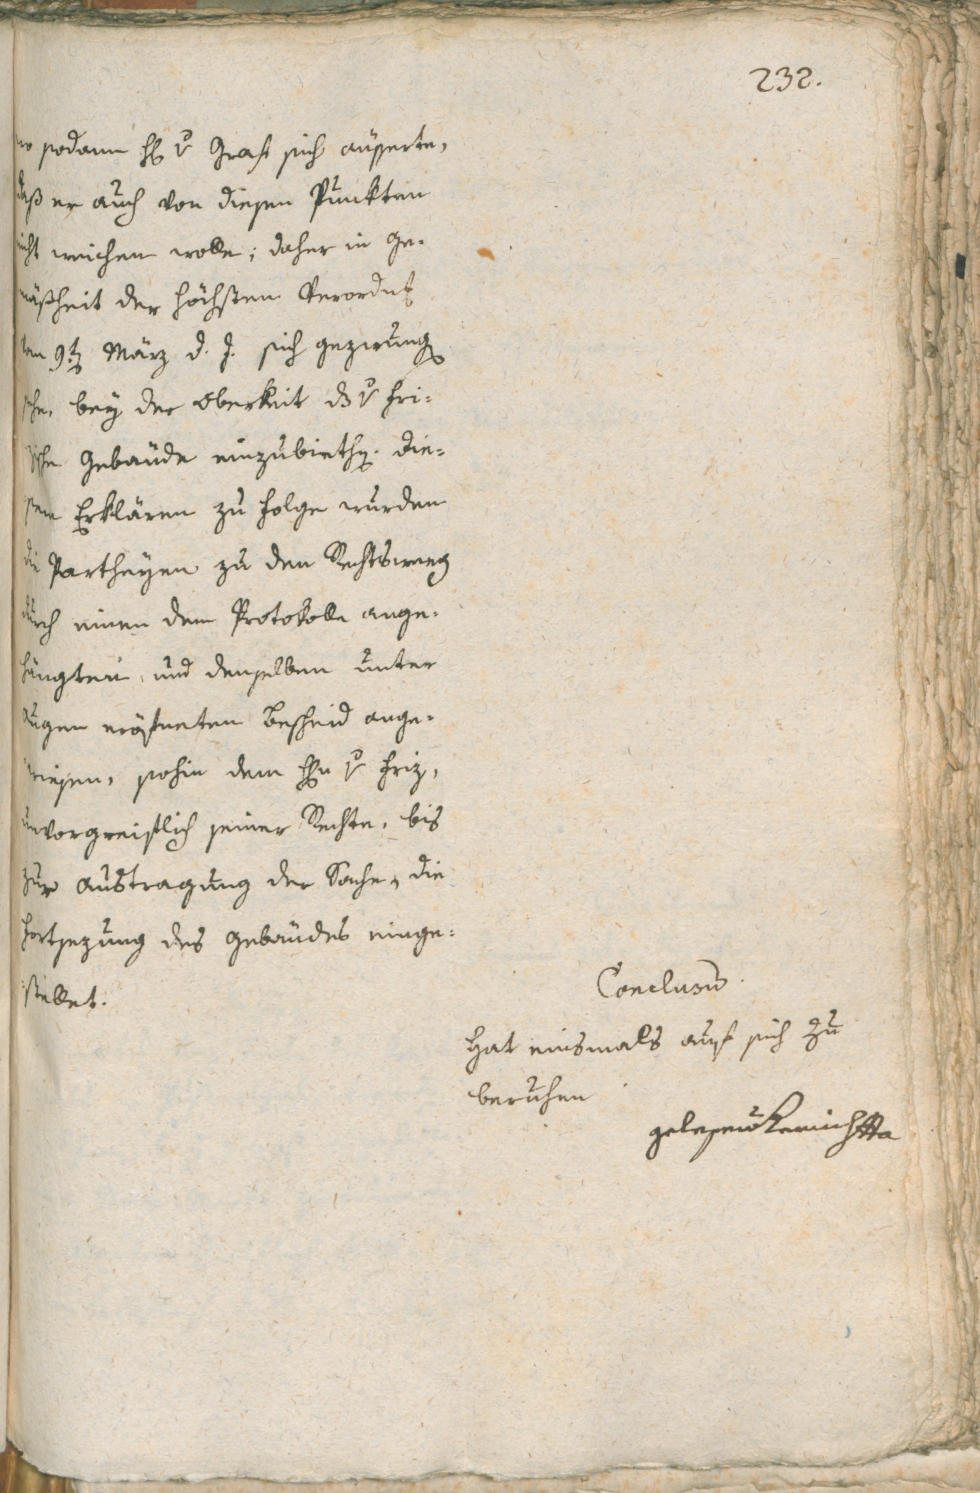 232.
wo sodann H v Graf sich äusserte,
daß er auch von diesen Punkten
nicht weichen wolle; daher in ge-
mäßheit der höchsten Verordng
den 9t März d. J. sich gezwung
sehe, bey der Oberkeit das v Fri-
zische Gebäude einzubiethen. Die-
sem Erklären zu folge wurden
die Partheyen zu den Rechtsweeg
durch einen dem Protokolle ange-
hängten, und denselben unter
augen eröfneten Bescheid ange-
wiesen, sohin dem Hn v Friz,
unvorgreiflich seiner Rechte, bis
zur Austragung der Sache, die
Fortsezung des Gebäudes einge-
stellet.
Conclusum
Hat einsmals auf sich zu
beruhen
gelesen